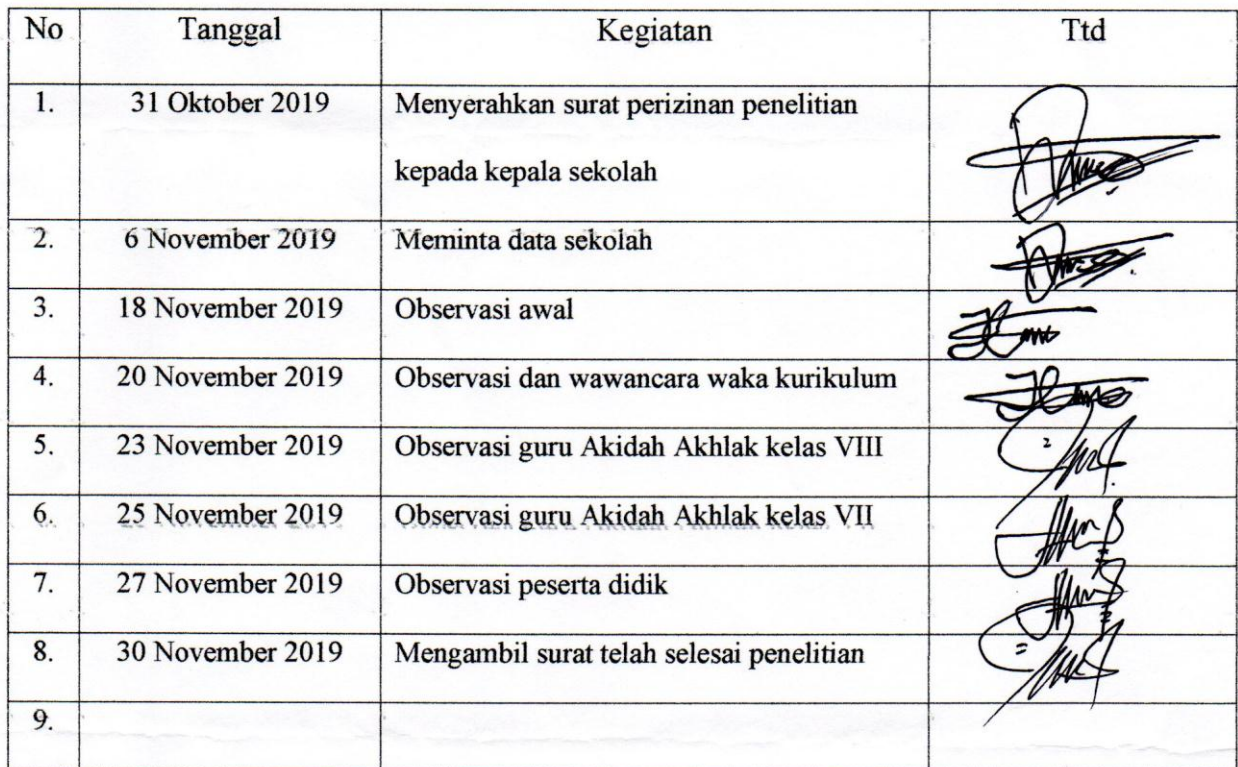 No Tanggal Kegiatan Ttd
1. 31 Oktober 2019 Menyerahkan surat perizinan penelitian
kepada kepala sekolah
2. 6 November 2019 Meminta data sekolah
3. 18 November 2019 Observasi awal
4. 20 November 2019 Observasi dan wawancara waka kurikulum
5. 23 November 2019 Observasi guru Akidah Akhlak kelas VIII
6. 25 November 2019 Observasi guru Akidah Akhlak kelas VII
7. 27 November 2019 Observasi peserta didik
8. 30 November 2019 Mengambil surat telah selesai penelitian
9.